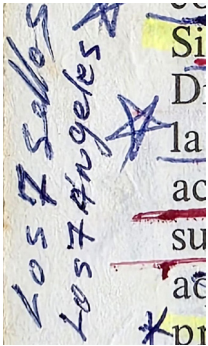 Los 7 Sellos
Los 7 Ángeles
Si
la
ac
su
ac
pr